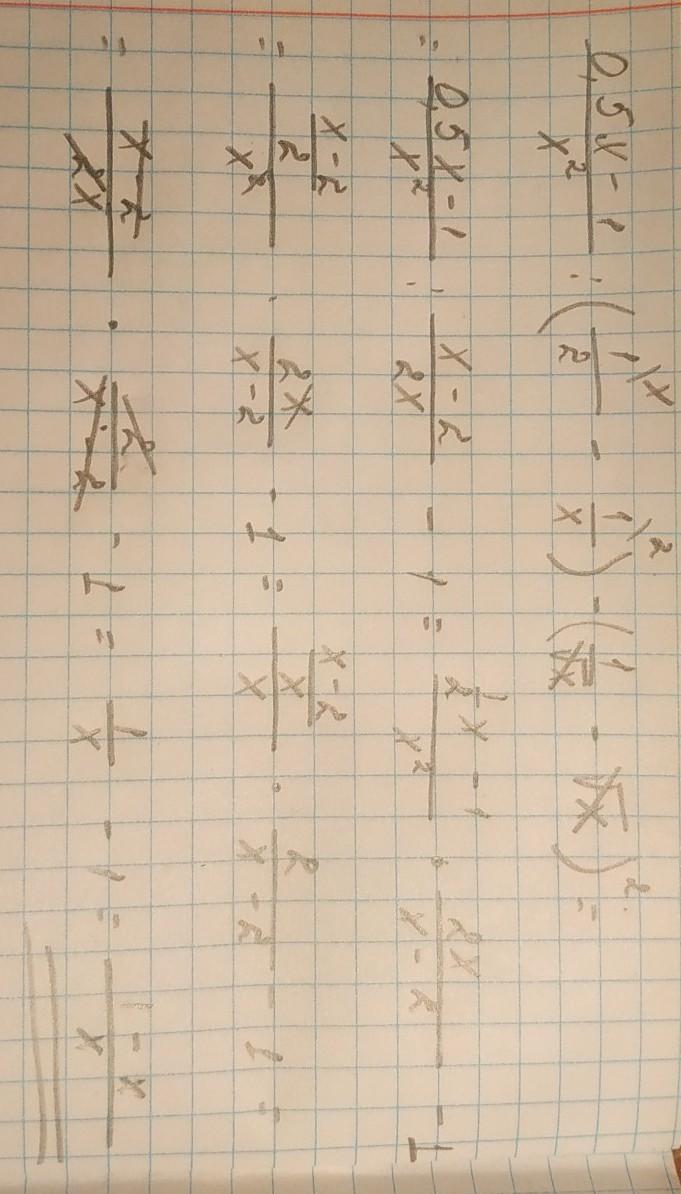 0,5x-1/x² : (1/2 \x - 1/x \2) - (1/√x - √x)² =
= 0,5x-1/x² : x-2/2x - 1 = ½x-1/x² · 2x/x-2 - 1
= x-2/2/x² · 2x/x-2 - 1 = x-2/x/x · 2/x-2 - 1 =
= x-2/2x · 2/x-2 - 1 = 1/x - 1 = 1-x/x